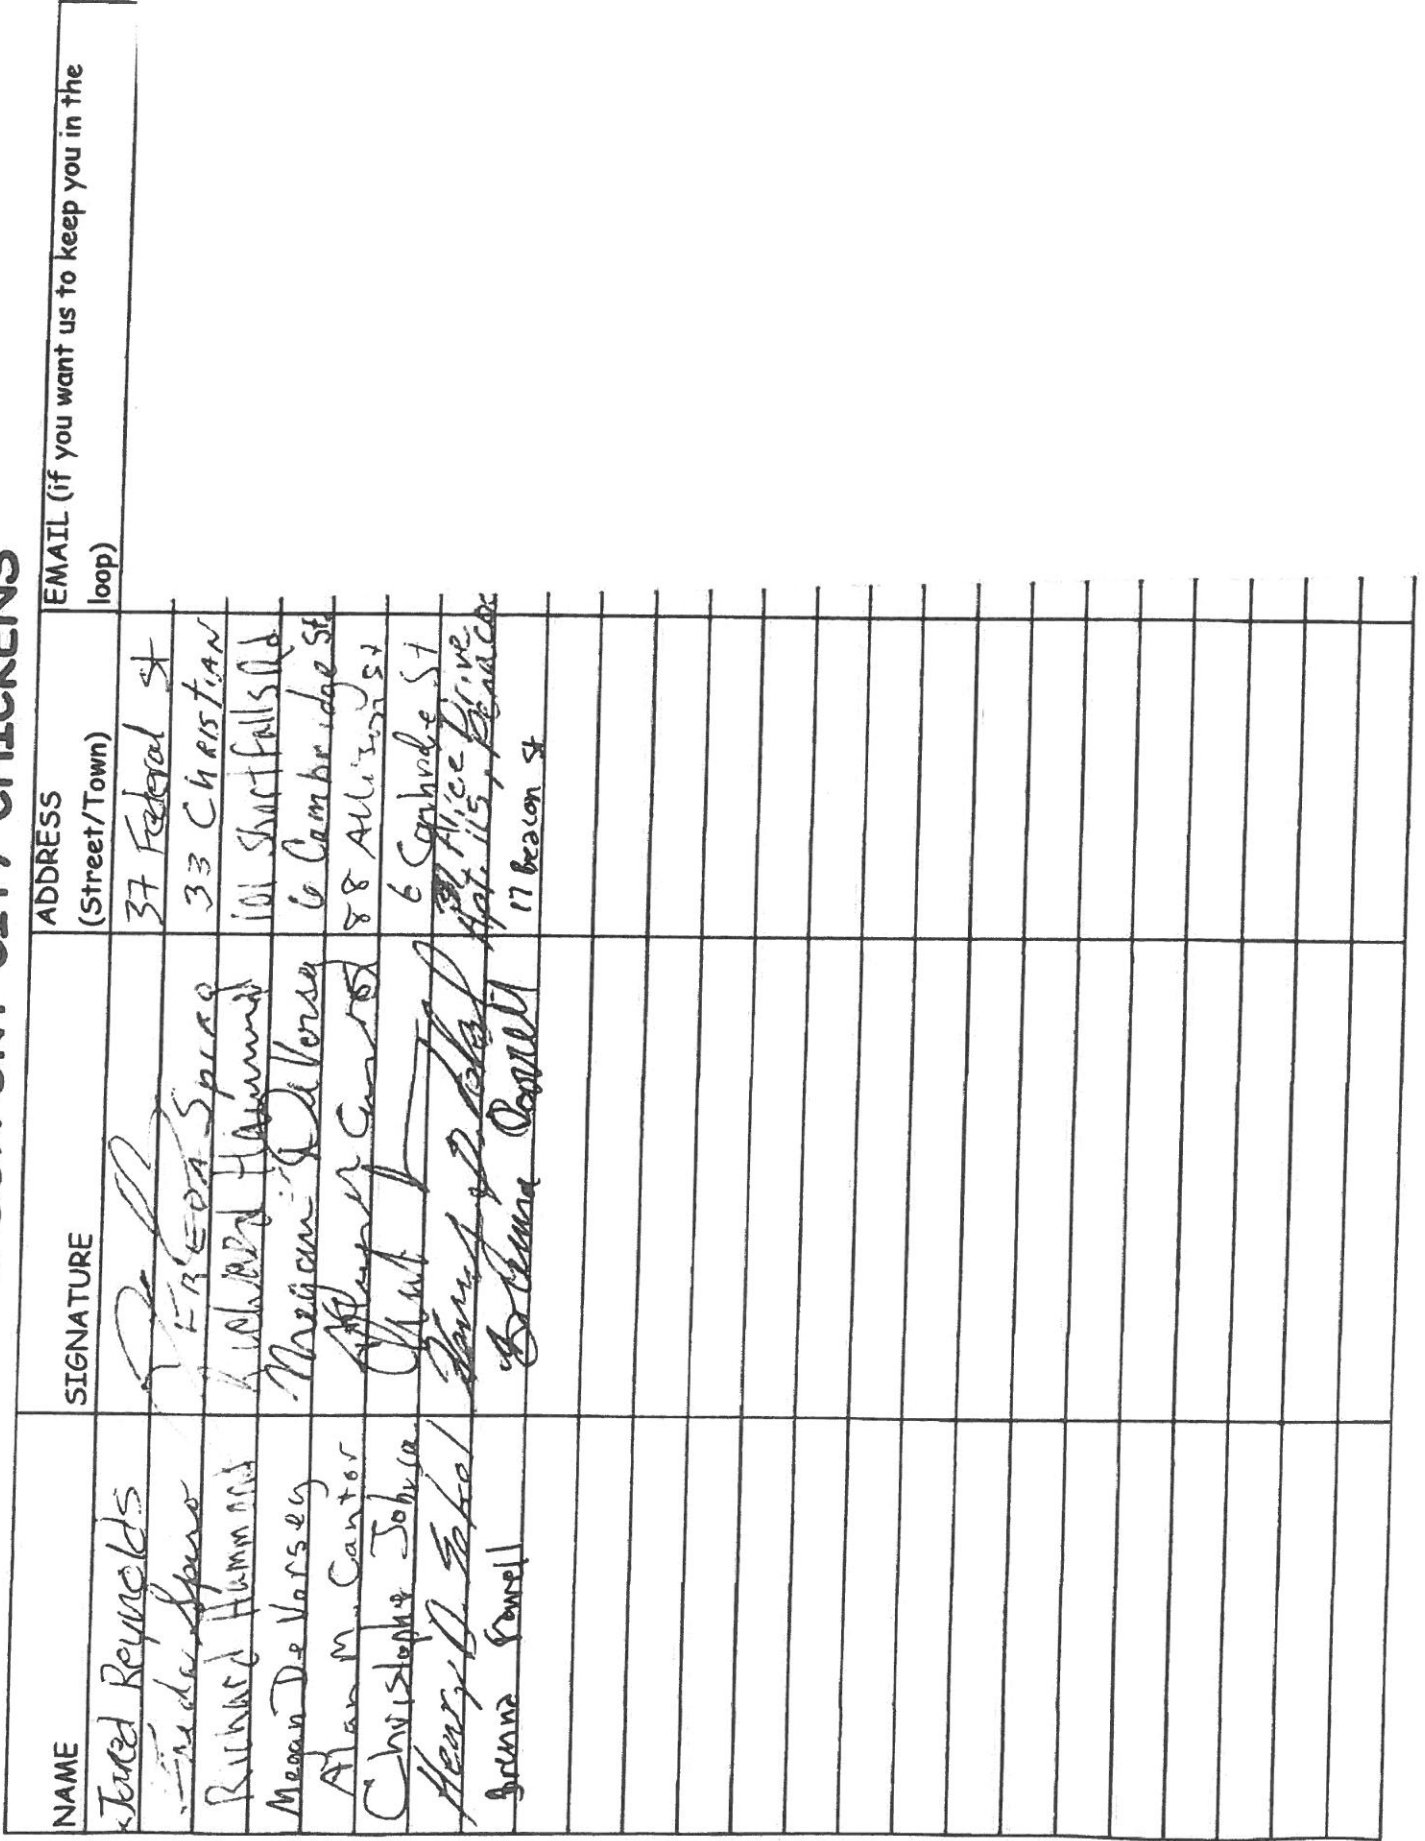 CITY CHICKENS
NAME SIGNATURE ADDRESS (Street/Town) EMAIL (if you want us to keep you in the loop)
Jared Reynolds 37 Federal St
Freda Spiro FREDA Spiro 33 CHRISTIAN
Richard Hammond Richard Hammond 101 Short Falls Rd
Megan DeVorsey Megan DeVorsey 6 Cambridge St
Alan M. Cantor 88 Allison St
Christopher Johnson 6 Cambridge St
Henry D. 39 Alice Drive
Apt. 115,
Brenna Powell Brenna Powell 17 beacon st